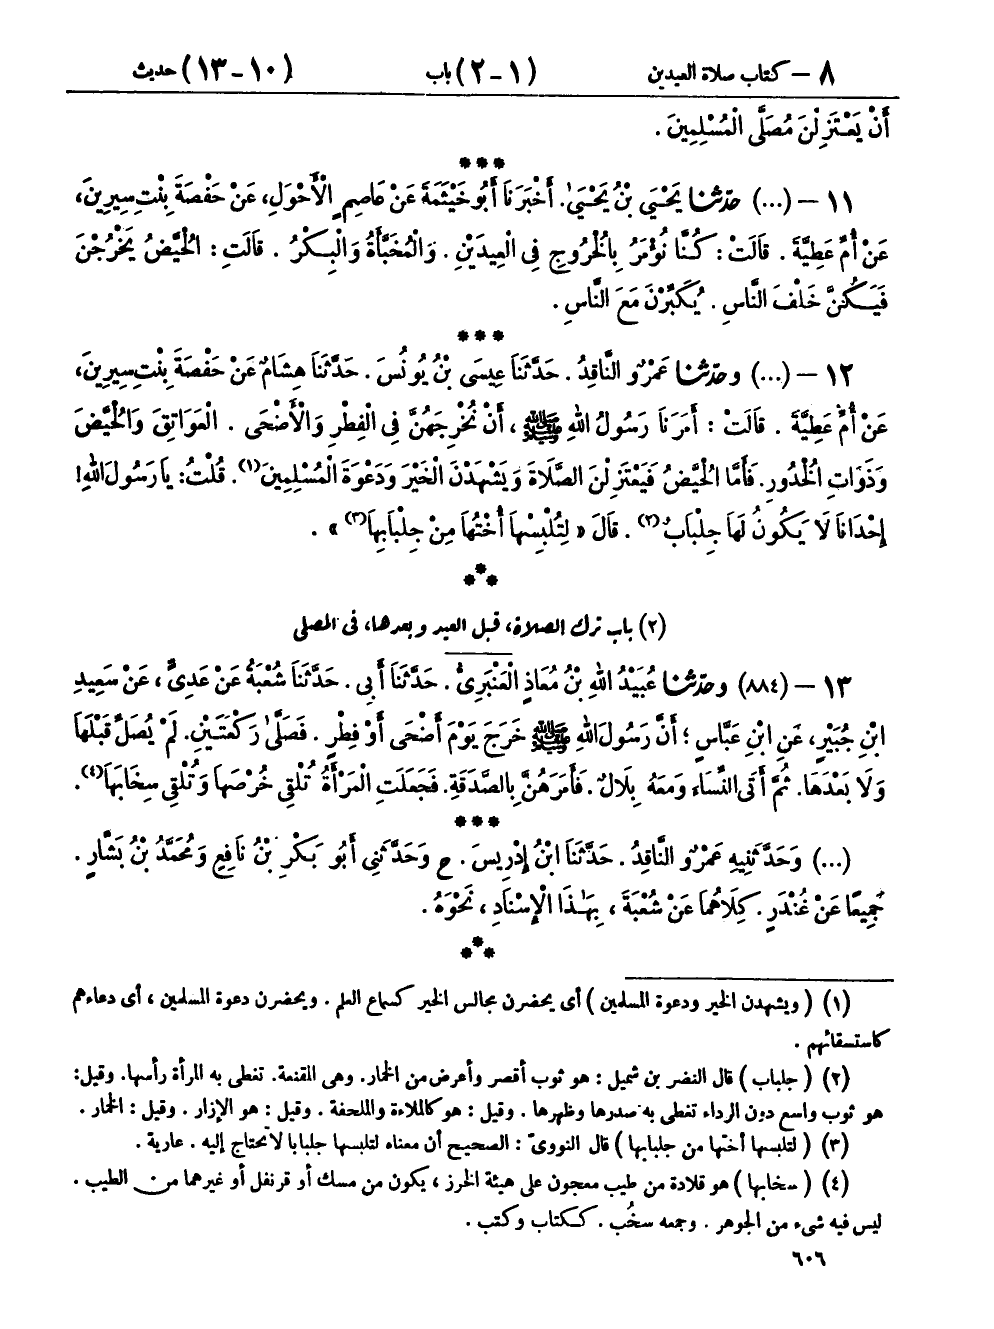 ٨ – كتاب صلاة العيدين (١ – ٢) باب (١٠ – ١٣) حديث
أَنْ يَعْتَزِلْنَ مُصَلَّى الْمُسْلِمِينَ .
***
١١ – (...) حدّثنا يَحْيَى بْنُ يَحْيَىٰ. أَخْبَرَنَا أَبُو خَيْثَمَةَ عَنْ عَاصِمٍ الْأَحْوَلِ، عَنْ حَفْصَةَ بِنْتِ سِيرِينَ،
عَنْ أُمِّ عَطِيَّةَ . قَالَتْ : كُنَّا نُؤْمَرُ بِالْخُرُوجِ فِي الْعِيدَيْنِ . وَالْمُخَبَّأَةُ وَالْبِكْرُ . قَالَتِ : الْحُيَّضُ يَخْرُجْنَ
فَيَكُنَّ خَلْفَ النَّاسِ . يُكَبِّرْنَ مَعَ النَّاسِ .
***
١٢ – (...) وحدّثنا عَمْرٌو النَّاقِدُ . حَدَّثَنَا عِيسَى بْنُ يُونُسَ . حَدَّثَنَا هِشَامٌ عَنْ حَفْصَةَ بِنْتِ سِيرِينَ،
عَنْ أُمِّ عَطِيَّةَ . قَالَتْ : أَمَرَنَا رَسُولُ اللهِ ﷺ ، أَنْ نُخْرِجَهُنَّ فِي الْفِطْرِ وَالْأَضْحَى . الْعَوَاتِقَ وَالْحُيَّضَ
وَذَوَاتِ الْخُدُورِ. فَأَمَّا الْحُيَّضُ فَيَعْتَزِلْنَ الصَّلَاةَ وَيَشْهَدْنَ الْخَيْرَ وَدَعْوَةَ الْمُسْلِمِينَ(١). قُلْتُ: يَا رَسُولَ اللهِ!
إِحْدَانَا لَا يَكُونُ لَهَا جِلْبَابٌ(٢) . قَالَ « لِتُلْبِسْهَا أُخْتُهَا مِنْ جِلْبَابِهَا(٣) » .
***
(٢) باب ترك الصلاة، قبل العيد وبعدها، فى المصلى
١٣ – (٨٨٤) وحدّثنا عُبَيْدُ اللهِ بْنُ مُعَاذٍ الْعَنْبَرِيُّ . حَدَّثَنَا أَبِي . حَدَّثَنَا شُعْبَةُ عَنْ عَدِيٍّ ، عَنْ سَعِيدِ
ابْنِ جُبَيْرٍ، عَنِ ابْنِ عَبَّاسٍ ؛ أَنَّ رَسُولَ اللهِ ﷺ خَرَجَ يَوْمَ أَضْحَى أَوْ فِطْرٍ . فَصَلَّىٰ رَكْعَتَيْنِ. لَمْ يُصَلِّ قَبْلَهَا
وَلَا بَعْدَهَا. ثُمَّ أَتَى النِّسَاءَ وَمَعَهُ بِلَالٌ . فَأَمَرَهُنَّ بِالصَّدَقَةِ. فَجَعَلَتِ الْمَرْأَةُ تُلْقِي خُرْصَهَا وَتُلْقِي سِخَابَهَا(٤).
***
(...) وَحَدَّثَنِيهِ عَمْرٌو النَّاقِدُ . حَدَّثَنَا ابْنُ إِدْرِيسَ . ح وَحَدَّثَنِي أَبُو بَكْرِ بْنُ نَافِعٍ وَمُحَمَّدُ بْنُ بَشَّارٍ .
جَمِيعًا عَنْ غُنْدَرٍ . كِلَاهُمَا عَنْ شُعْبَةَ ، بِهَـٰذَا الْإِسْنَادِ ، نَحْوَهُ .
***
(١) ( ويشهدن الخير ودعوة المسلمين ) أى يحضرن مجالس الخير كسماع العلم . ويحضرن دعوة المسلمين ، أى دعاءهم
كاستسقائهم .
(٢) ( جلباب ) قال النضر بن شميل : هو ثوب أقصر وأعرض من الخمار. وهى المقنعة. تغطى به المرأة رأسها. وقيل:
هو ثوب واسع دون الرداء تغطى به صدرها وظهرها . وقيل : هو كالملاءة والملحفة . وقيل : هو الإزار . وقيل : الخمار .
(٣) ( لتلبسها أختها من جلبابها ) قال النووىّ : الصحيح أن معناه لتلبسها جلبابا لا تحتاج إليه . عارية .
(٤) ( سخابها ) هو قلادة من طيب معجون على هيئة الخرز ، يكون من مسك أو قرنفل أو غيرهما من الطيب .
ليس فيه شىء من الجوهر . وجمعه سخُب . ككتاب وكتب .
٦٠٦